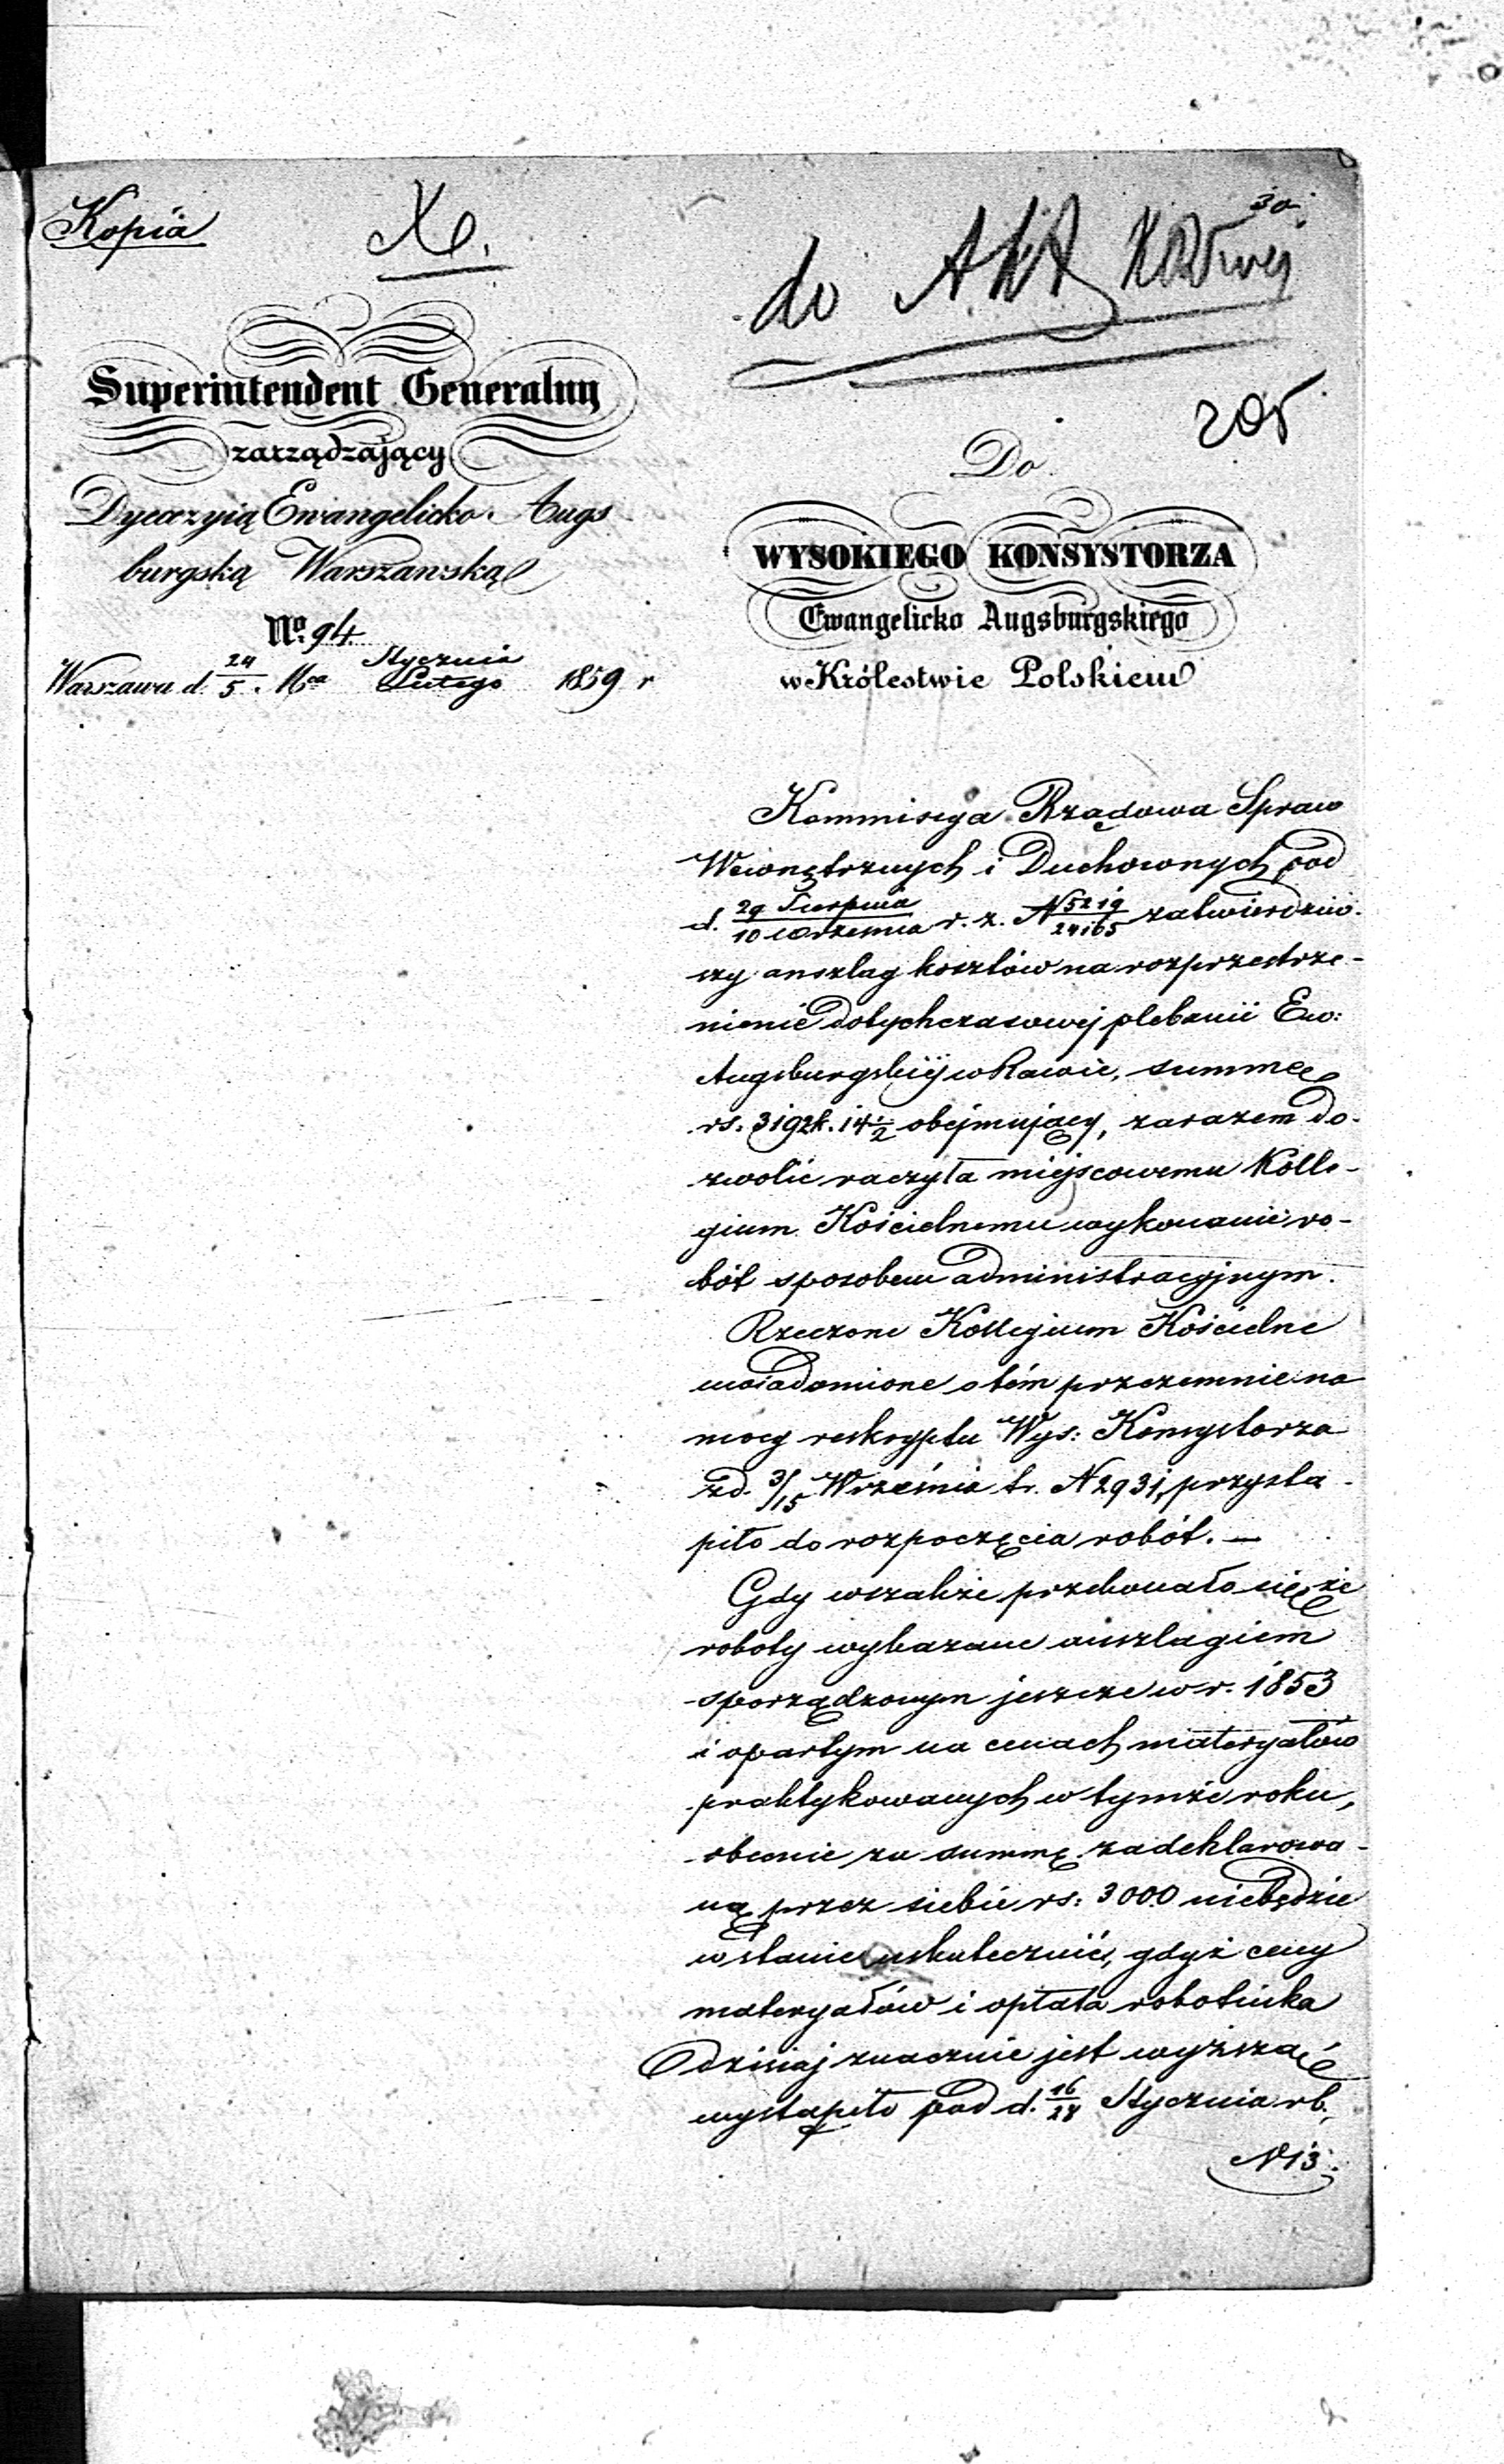 Kopia
30
do Akt
205
Superintendent Generalny
zarządzający
Dyecezyią Ewangelicko Augs
burgską Warszawską
No. 94.
Warszawa d. 24/5. Mca Stycznia/Lutego 1859 r
Do
WYSOKIEGO KONSYSTORZA
Ewangelicko Augsburgskiego
w Królestwie Polskiem
Kommissya Rządowa Spraw
Wewnętrznych i Duchownych pod
d. 29 Sierpnia/10 Września r. z. N 5219/24165 zatwierdziw-
szy anszlag kosztów na rozprzestrze-
nienie dotychczasowej plebanii Ew:
Augsburgskiej w Rawie, summę
rs. 3192 k. 14 1/2 obejmujący, zarazem do-
zwolić raczyła miejscowemu Kolle-
gium Kościelnemu wykonanie ro-
bót sposobem administracyjnym.
Rzeczone Kollegium Kościelne
uwiadomione o tém przezemnie na
mocy reskryptu Wys: Konsystorza
z d. 3/15 Września t.r. N 2931, przystą-
piło do rozpoczęcia robót. —
Gdy wszakże przekonało się, że
roboty wykazane anszlagiem
sporządzonym jeszcze w r. 1853
i opartym na cenach materyałów
praktykowanych w tymże roku,
obecnie za summę zadeklarowa-
ną przez siebie rs: 3000 niebędzie
w stanie uskutecznić, gdyż ceny
materyałów i opłata robotnika
dzisiaj znacznie jest wyższą,
wystąpiło pod d. 16/28 Stycznia rb.
N 13.